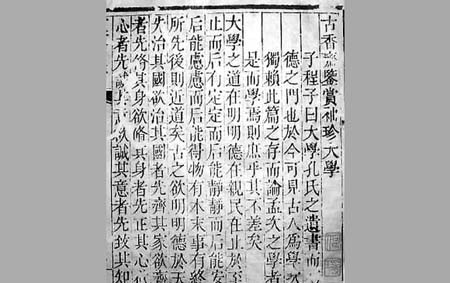 古香齋鑒賞袖珍大學
子程子曰大學孔氏之遺書而
德之門也於今可見古人爲學次
獨賴此篇之存而論孟次之學者
是而學焉則庶乎其不差矣
大學之道在明明德在親民在止於至
止而后有定定而后能靜靜而后能安
后能慮慮而后能得物有本末事有終
所先後則近道矣古之欲明明德於天
先治其國欲治其國者先齊其家欲齊
者先脩其身欲脩其身者先正其心欲
心者先誠其意欲誠其意者先致其知